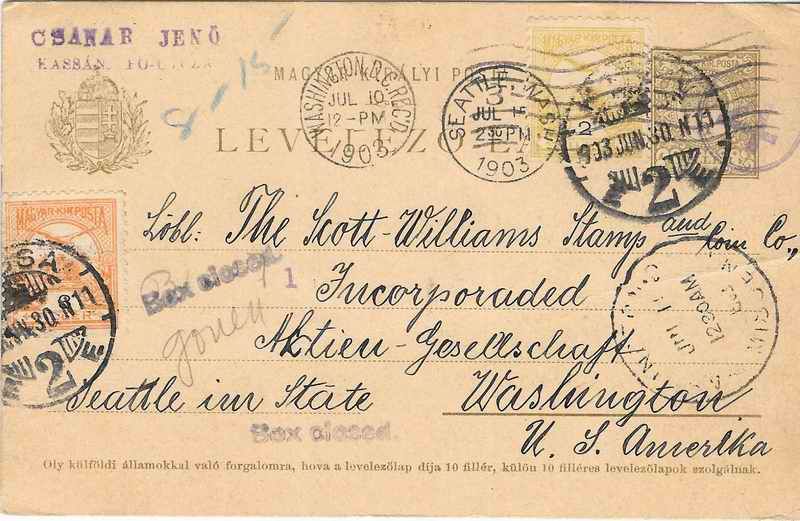 CSANAR JENŐ
KASSÁN, FO-UTCZA
8/15
MAGYAR KIRÁLYI PO
LEVELEZŐ
WASHINGTON, D.C. REC'D.
JUL 10
12-PM
1903
SEATTLE, WASH.
3
JUL 15
2 30 PM
1903
MAGYAR KIR. POSTA
2
KIR. POSTA
903 JUN. 30. N 11
2
MAGYAR KIR. POSTA
SSA
JUN. 30. N 11
2
Löbl. The Scott-Williams Stamp and Coin Co.,,
Box closed.
1
Incorporaded
gonen
Aktien-Gesellschaft
Seattle im State Washington
Box closed.
U. S. Amerika
JUL 11
1230AM
Oly külföldi államokkal való forgalomra, hova a levelezőlap díja 10 fillér, külön 10 filléres levelezőlapok szolgálnak.